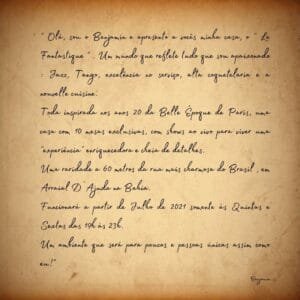 " Olá, sou o Benjamin e apresento a vocês minha casa, o " La
Fantastique " . Um mundo que reflete tudo que sou apaixonado
: Jazz, Tango, excelência no serviço, alta coquetelaria e a
nouvelle cuisine.
Toda inspirada nos anos 20 da Belle Époque de Paris, uma
casa com 10 mesas exclusivas, com shows ao vivo para viver uma
"experiência" enriquecedora e cheia de detalhes.
Uma raridade a 60 metros da rua mais charmosa do Brasil , em
Arraial D' Ajuda na Bahia.
Funcionará a partir de Julho de 2021 somente às Quintas e
Sextas das 19h às 23h.
Um ambiente que será para poucos e pessoas únicas assim como
eu!"
Benjamin